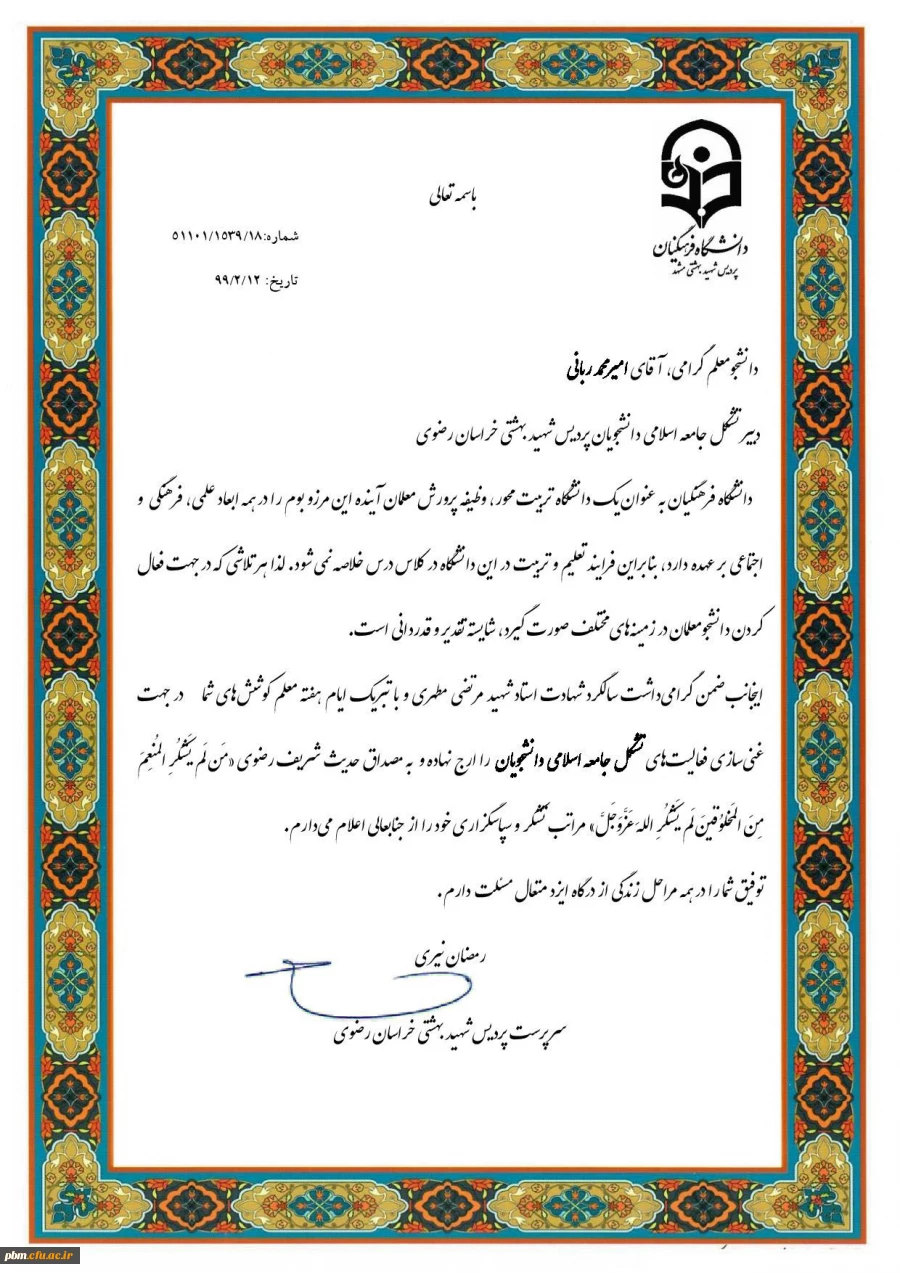 باسمه تعالی
دانشگاه فرهنگیان
پردیس شهید بهشتی مشهد
شماره:۵۱۱۰۱/۱۵۳۹/۱۸
تاریخ: ۹۹/۲/۱۲
دانشجومعلم گرامی، آقای امیرمحمد ربانی
دبیر تشکل جامعه اسلامی دانشجویان پردیس شهید بهشتی خراسان رضوی
دانشگاه فرهنگیان به عنوان یک دانشگاه تربیت محور، وظیفه پرورش معلمان آینده این مرز و بوم را در همه ابعاد علمی، فرهنگی و
اجتماعی بر عهده دارد، بنابراین فرایند تعلیم و تربیت در این دانشگاه در کلاس درس خلاصه نمی شود. لذا هر تلاشی که در جهت فعال
کردن دانشجومعلمان در زمینه های مختلف صورت گیرد، شایسته تقدیر و قدردانی است.
اینجانب ضمن گرامی‌داشت سالگرد شهادت استاد شهید مرتضی مطهری و با تبریک ایام هفته معلم کوشش های شما در جهت
غنی سازی فعالیت‌های تشکل جامعه اسلامی دانشجویان را ارج نهاده و به مصداق حدیث شریف رضوی «مَن لَم یَشکُرِ المُنعِمَ
مِنَ المَخلوُقینَ لَم یَشکُرِ اللهَ عَزَّوَجَلَّ» مراتب تشکر و سپاسگزاری خود را از جنابعالی اعلام می‌دارم.
توفیق شما را در همه مراحل زندگی از درگاه ایزد متعال مسئلت دارم.
رمضان نیری
سرپرست پردیس شهید بهشتی خراسان رضوی
pbm.cfu.ac.ir